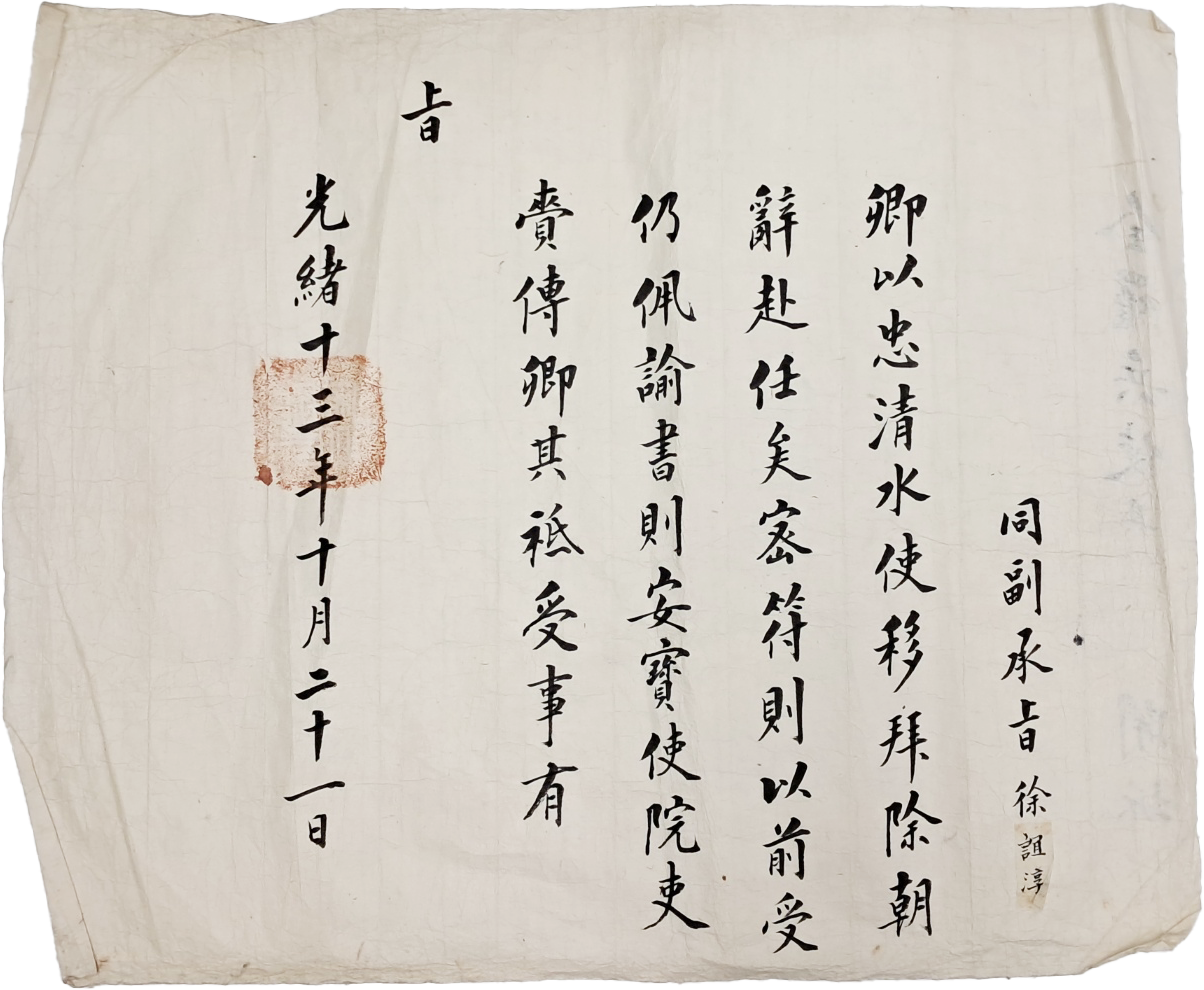 同副承旨徐詛淳
卿以忠清水使移拜除朝
辭赴任矣密符則以前受
仍佩諭書則安寶使院吏
賫傳卿其祗受事有
旨
光緒十三年十月二十一日